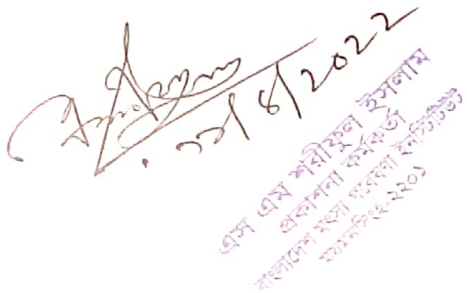 ২২/৪/2022
এস এম শরীফুল ইসলাম
প্রকাশনা কর্মকর্তা
বাংলাদেশ মৎস্য গবেষণা ইনস্টিটিউট
ময়মনসিংহ-২২০১